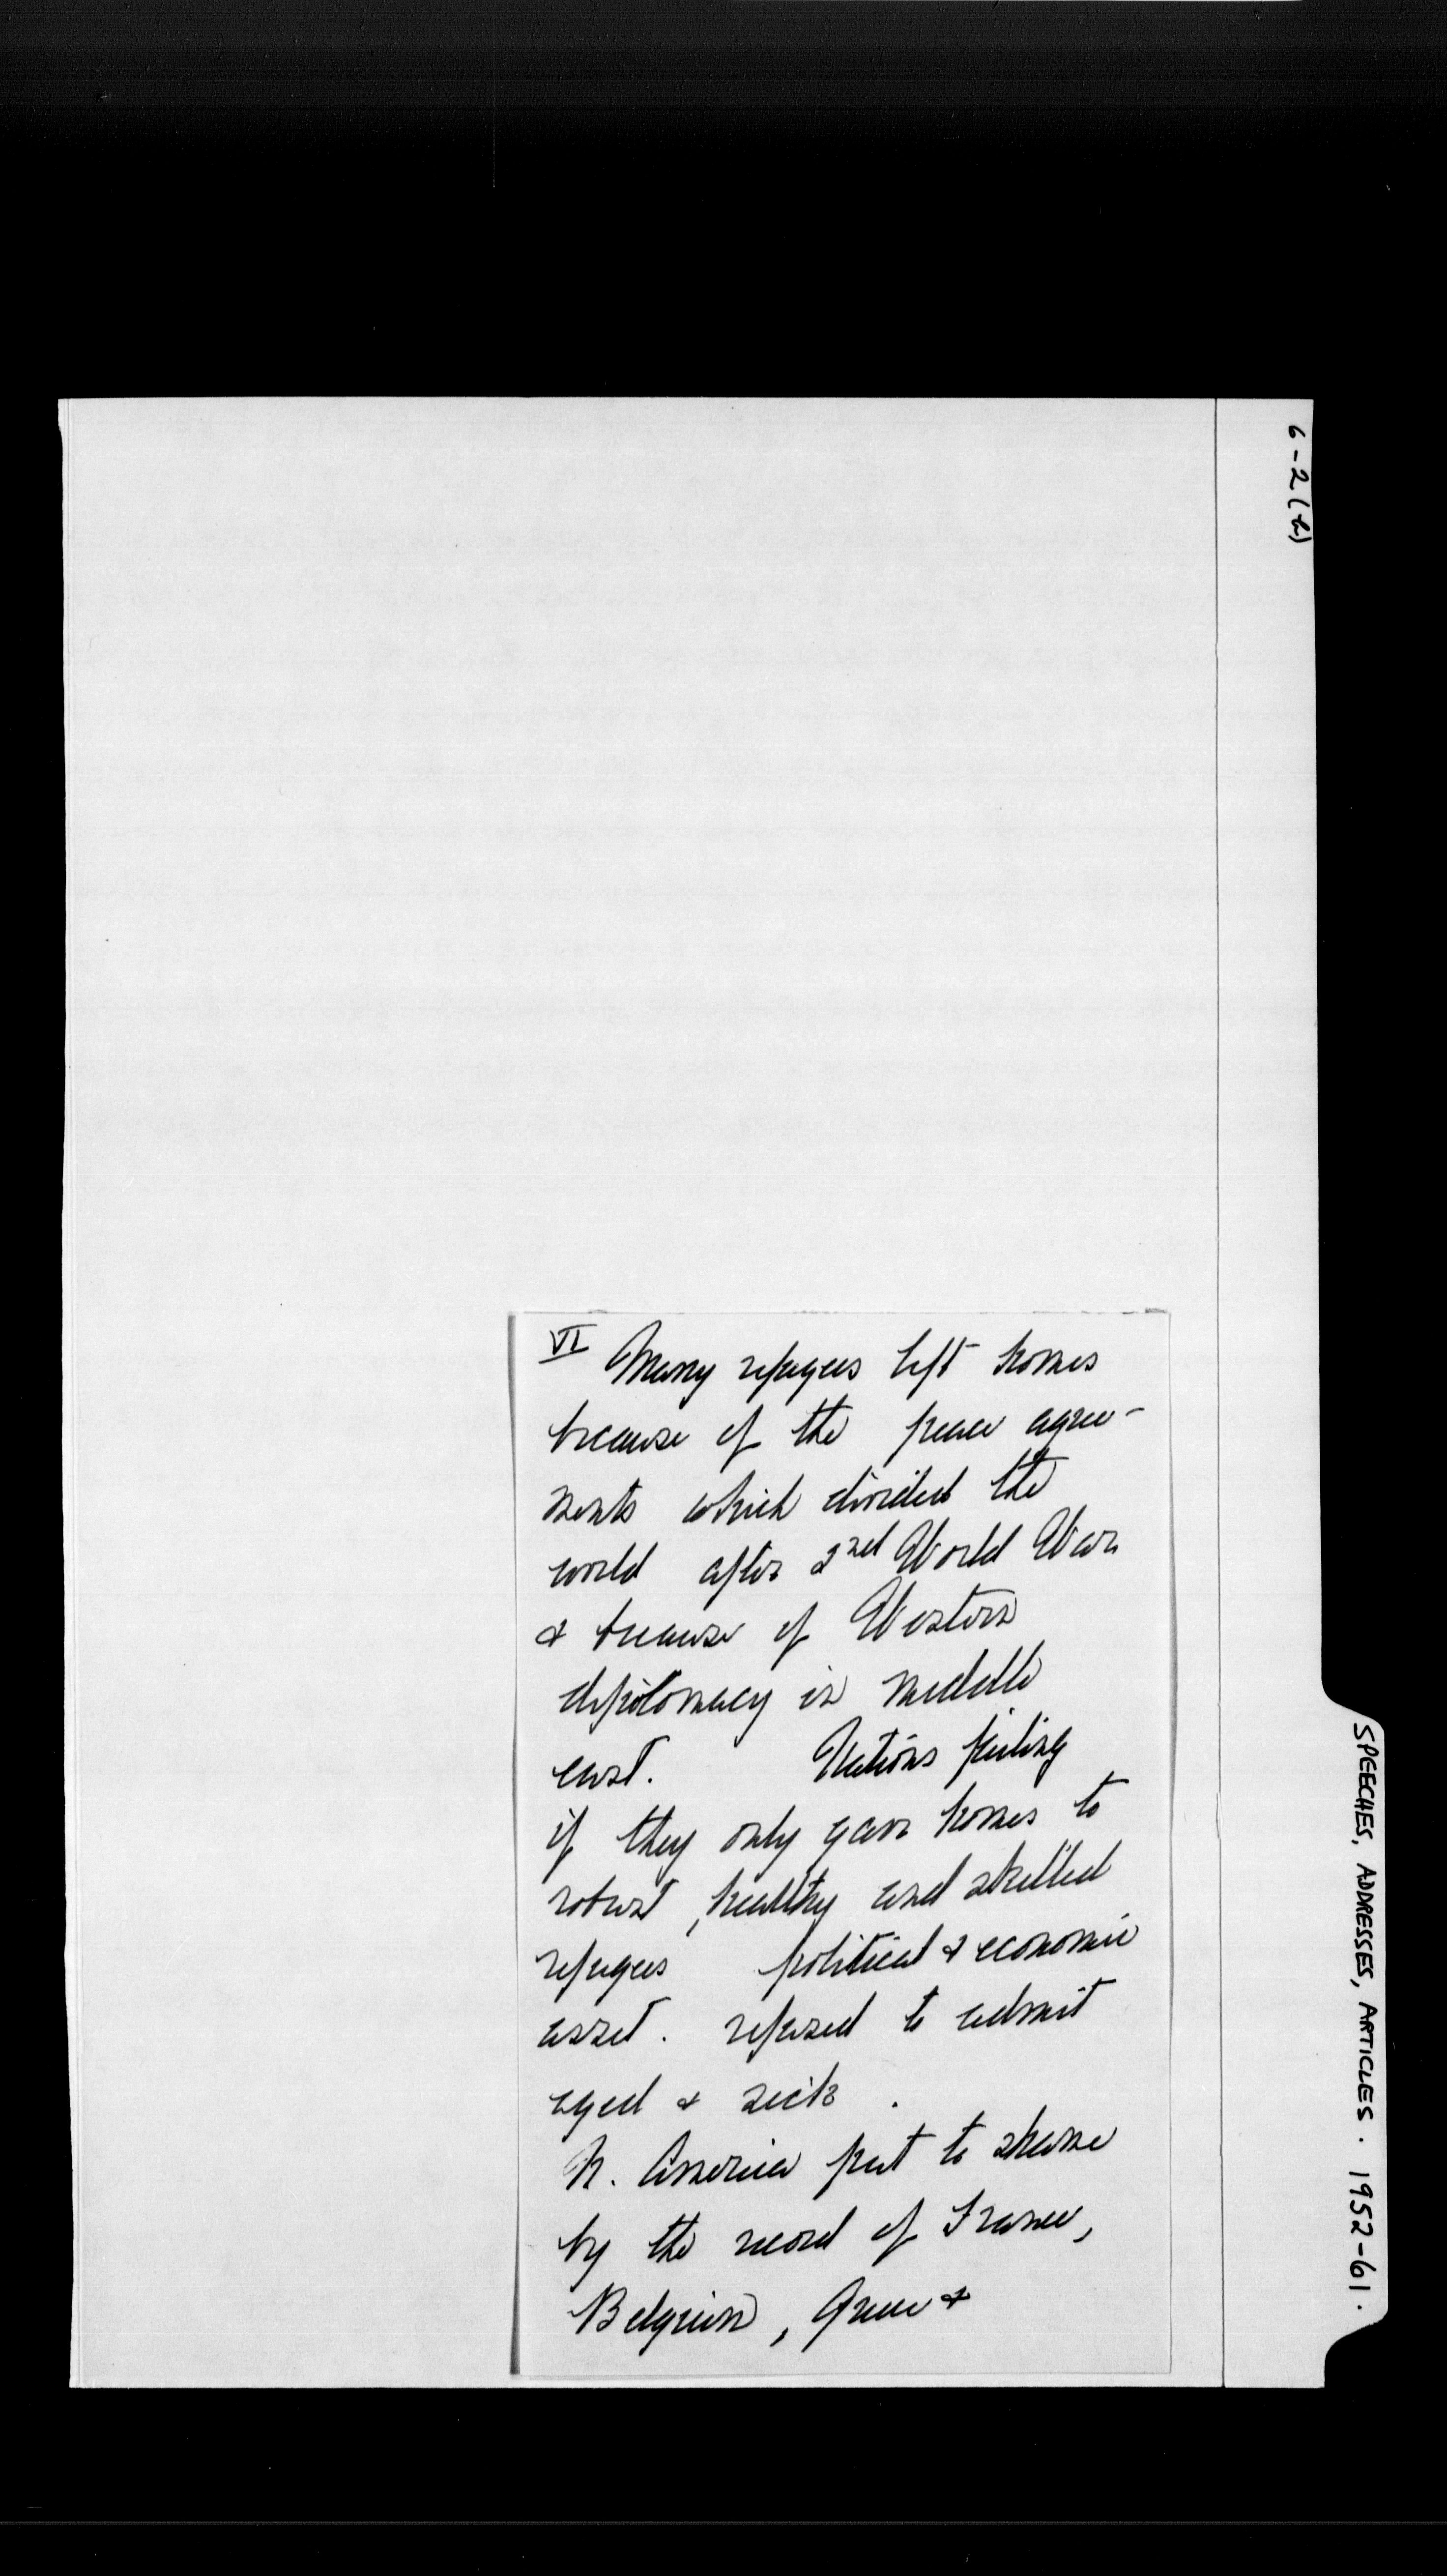 6-2(h)
SPEECHES, ADDRESSES, ARTICLES. 1952-61.
VI Many refugees left homes
because of the peace agree-
ments which divided the
world after 2nd World War
& because of Western
diplomacy in middle
east. Nations failing
if they only gave homes to
robust, healthy and skilled
refugees political & economic
asset. refused to admit
aged & sick.
N. America put to shame
by the record of France,
Belgium, Greece &